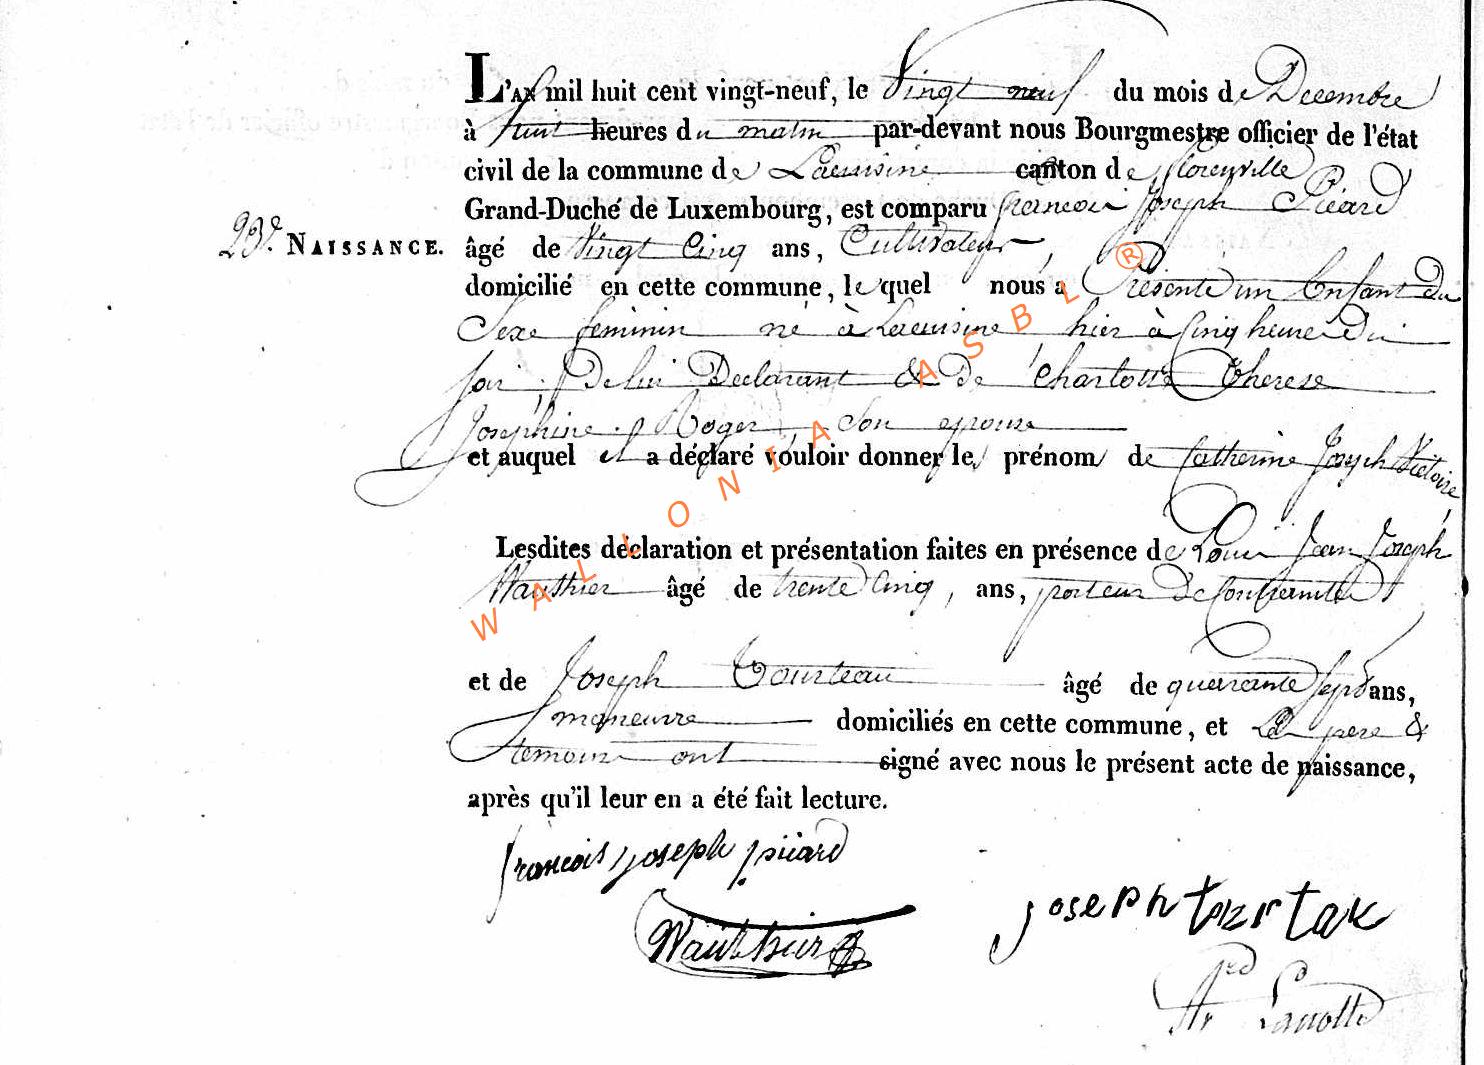 L'AN mil huit cent vingt-neuf, le Vingt neuf du mois de Decembre
à huit heures du matin par-devant nous Bourgmestre officier de l'état
civil de la commune de Lacuisine canton de florenville
Grand-Duché de Luxembourg, est comparu francois Joseph Picard
23e NAISSANCE. âgé de Vingt Cinq ans, Cultivateur,
domicilié en cette commune, lequel nous a Présenté un Enfant du
Sexe feminin né à Lacuisine hier à Cinq heure du
soir, De lui Declarant & de Charlotte Therese
Josephine Roger, son epouse
et auquel il a déclaré vouloir donner les prénoms de Catherine Joseph Victoire
Lesdites déclaration et présentation faites en présence de Louis Jean Joseph
Wauthier âgé de trente Cinq, ans, porteur De Contrainte
et de Joseph Tourteau âgé de quarante Sept ans,
maneuvre domiciliés en cette commune, et Le pere &
temoins ont signé avec nous le présent acte de naissance,
après qu'il leur en a été fait lecture.
francois joseph picard
Wauthier
joseph tourtau
Lanotte
WALLONIA ASBL ®